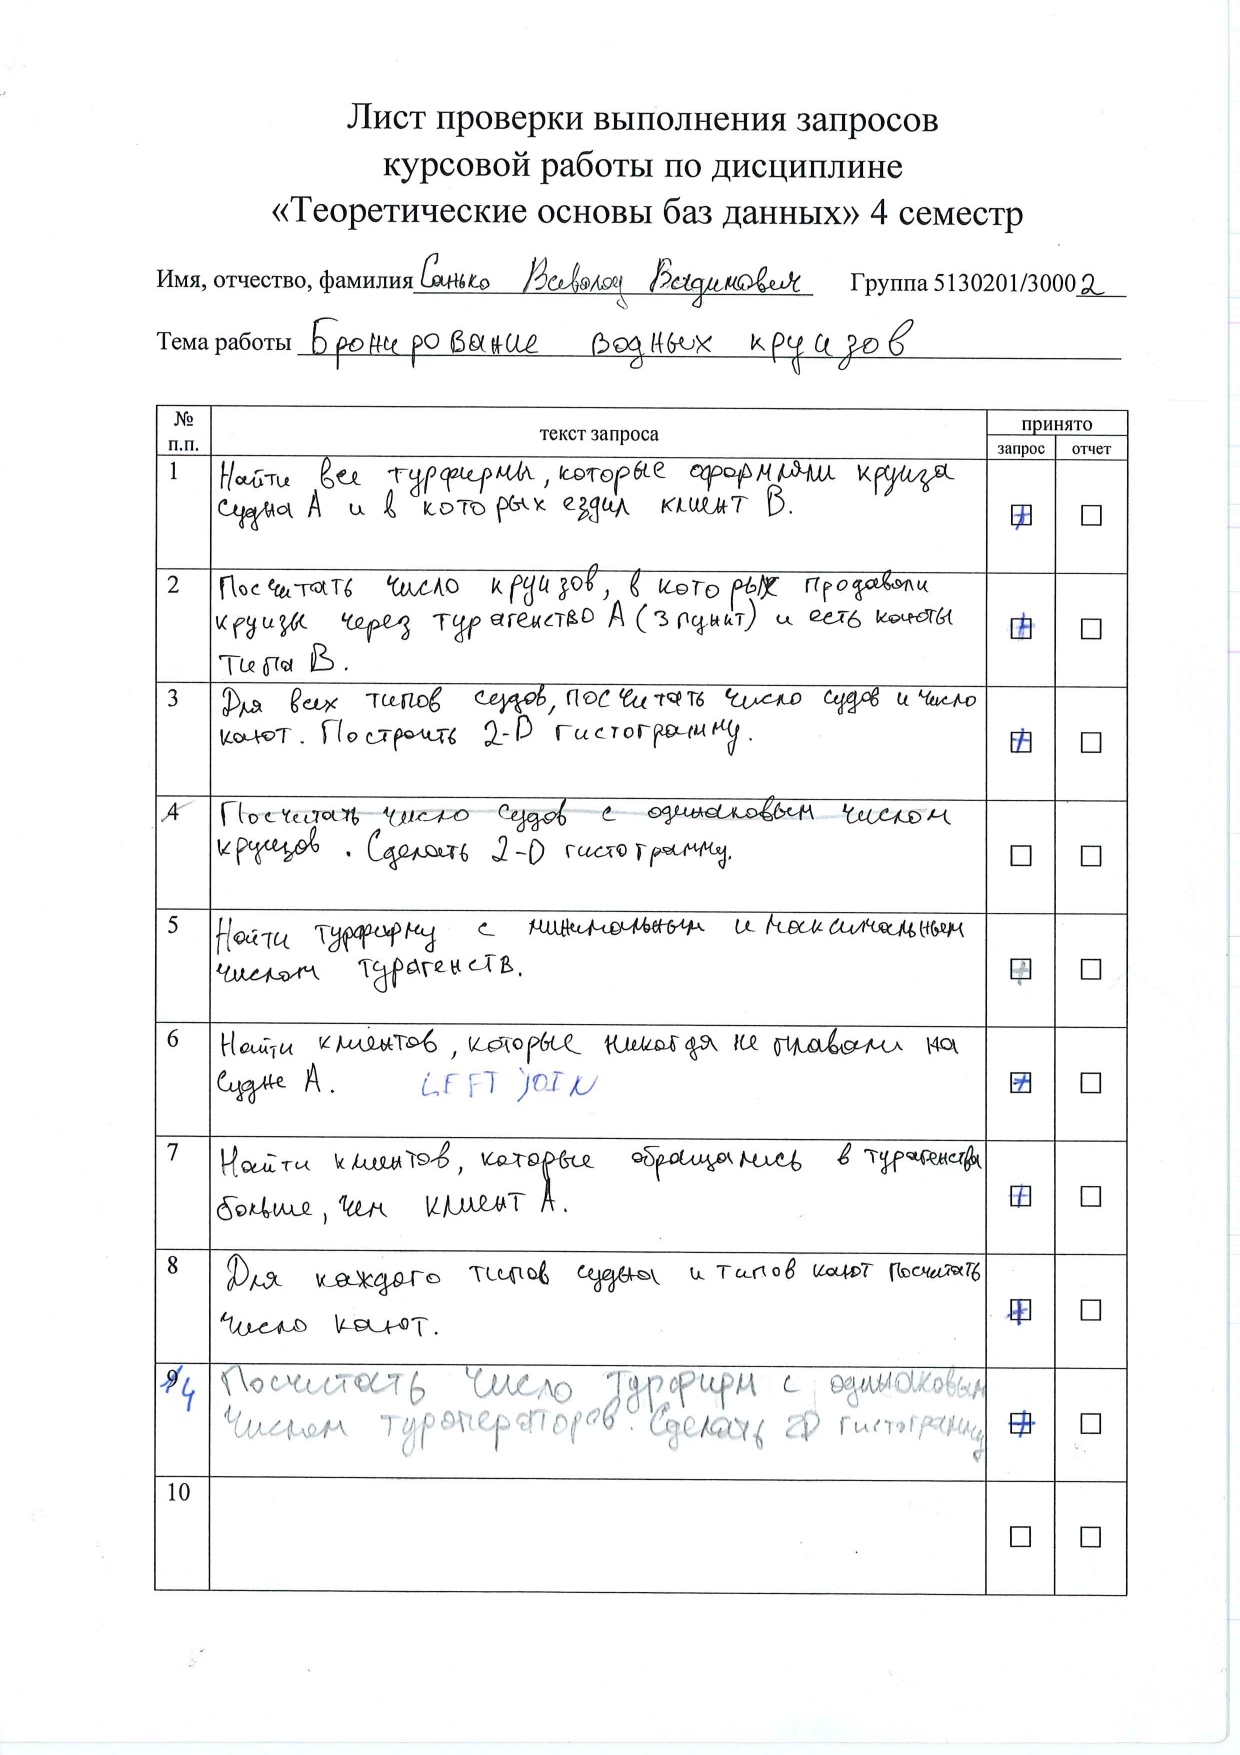 Лист проверки выполнения запросов
курсовой работы по дисциплине
«Теоретические основы баз данных» 4 семестр
Имя, отчество, фамилия Санько Всеволод Вадимович Группа 5130201/30002
Тема работы Бронирование водных круизов
№ п.п. текст запроса принято
запрос отчет
1 Найти все турфирмы, которые оформляли круиза
судна А и в которых ездил клиент В.
2 Посчитать число круизов, в которых продавали
круизы через турагенство А (3 пункт) и есть каюты
типа В.
3 Для всех типов судов, посчитать число судов и число
кают. Построить 2-D гистограмму.
4 Посчитать число судов с одинаковым числом
круизов. Сделать 2-D гистограмму.
5 Найти турфирму с минимальным и максимальным
числом турагенств.
6 Найти клиентов, которые никогда не плавали на
судне А. LEFT JOIN
7 Найти клиентов, которые обращались в турагенства
больше, чем клиент А.
8 Для каждого типов судна и типов кают посчитать
число кают.
9 4 Посчитать число турфирм с одинаковым
числом туроператоров. Сделать 2D гистограмму
10